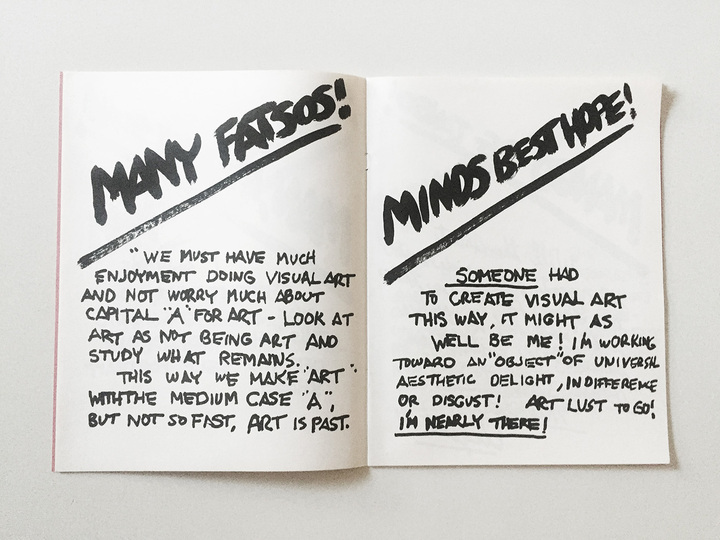 MANY FATSOS!
"WE MUST HAVE MUCH
ENJOYMENT DOING VISUAL ART
AND NOT WORRY MUCH ABOUT
CAPITAL "A" FOR ART - LOOK AT
ART AS NOT BEING ART AND
STUDY WHAT REMAINS.
THIS WAY WE MAKE "ART"
WITH THE MEDIUM CASE "A",
BUT NOT SO FAST, ART IS PAST.
MINDS BEST HOPE!
SOMEONE HAD
TO CREATE VISUAL ART
THIS WAY, IT MIGHT AS
WELL BE ME! I'M WORKING
TOWARD AN "OBJECT" OF UNIVERSAL
AESTHETIC DELIGHT, INDIFFERENCE
OR DISGUST! ART LUST TO GO!
I'M NEARLY THERE!